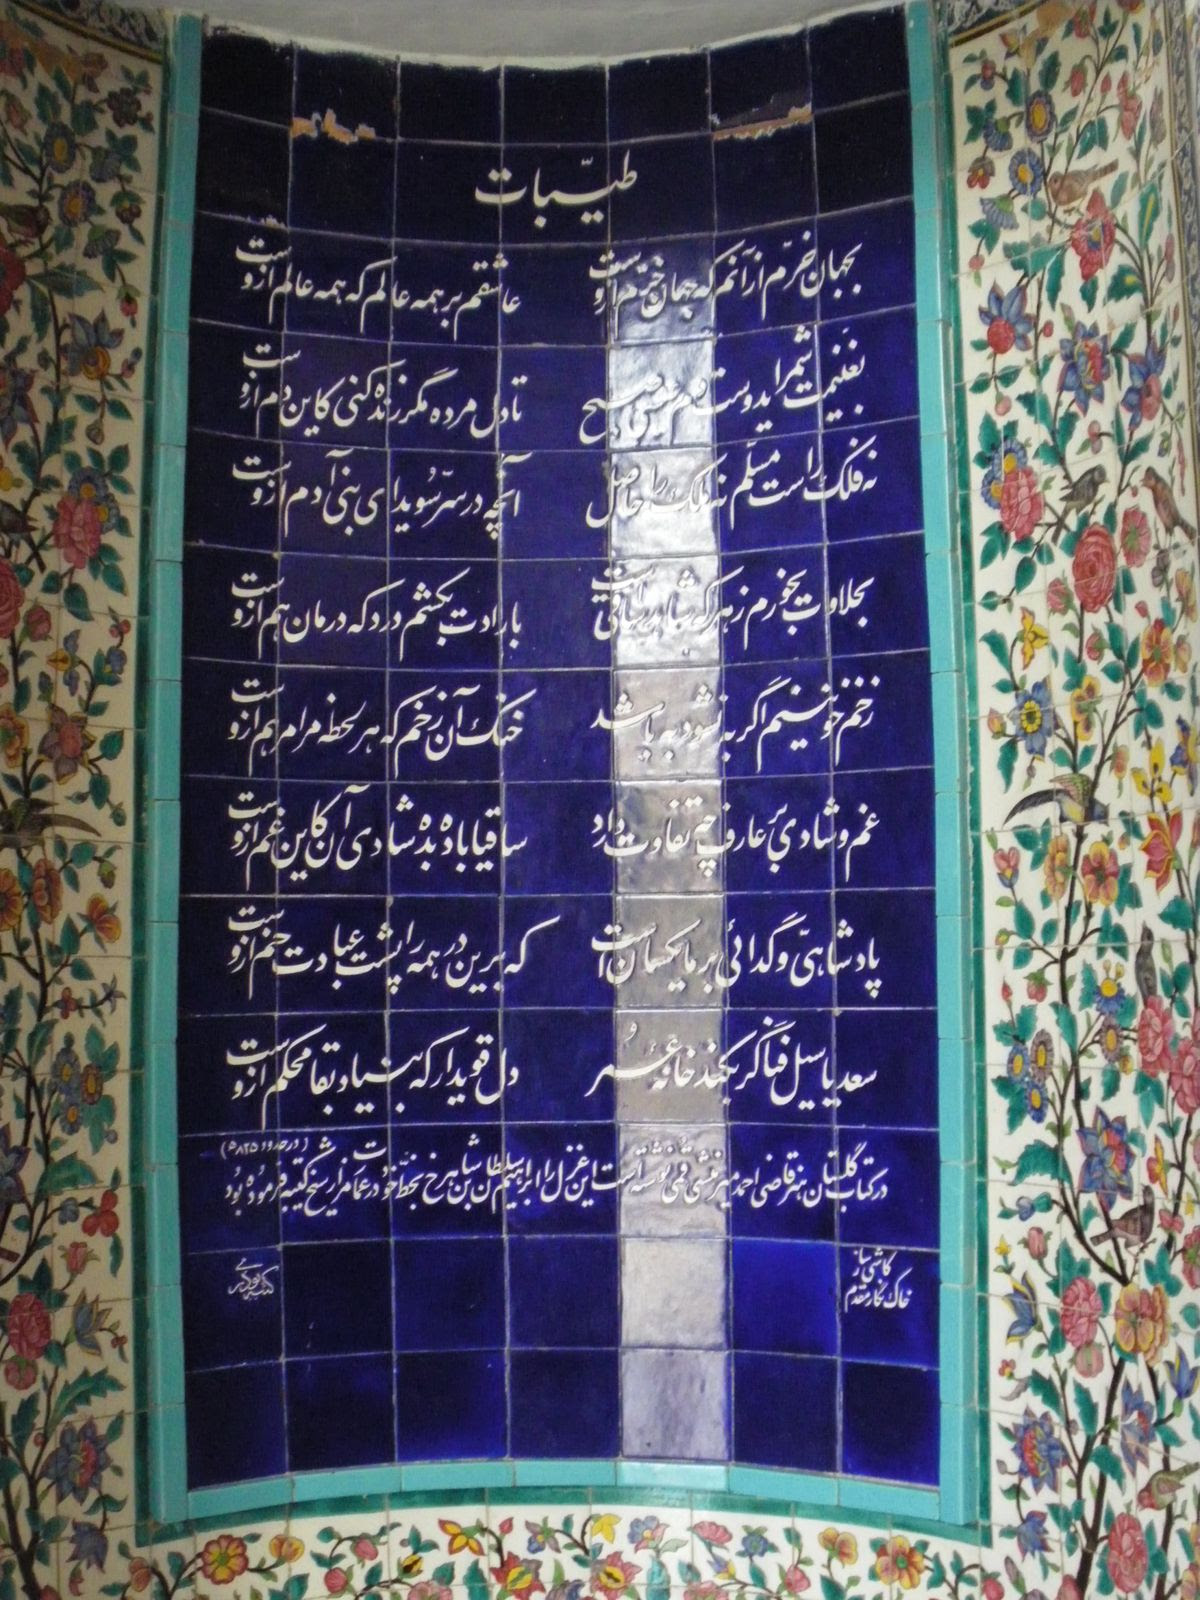 طیّبات
بجهان خرّم از آنم که جهان خرّم ازوست عاشقم بر همه عالم که همه عالم ازوست
بغنیمت شمر ای دوست دم عیسی صبح تا دل مرده مگر زنده کنی کاین دم ازوست
نه فلک راست مسلّم نه ملک را حاصل آنچه در سرّ سُویدای بنی آدم ازوست
بحلاوت بخورم زهر که شاهد ساقیست بارادت بکشم درد که درمان هم ازوست
زخم خونینم اگر به نشود به باشد خنک آن زخم که هر لحظه مرا مرهم ازوست
غم و شادی بر عارف چه تفاوت دارد ساقیا باده بده شادی آن کاین غم ازوست
پادشاهیّ و گدائی بر ما یکسان است که برین در همه را پشت عبادت خم ازوست
سعدیا سیل فنا گر بکند خانه عُمر دل قوی دار که بنیاد بقا محکم ازوست
در کتاب گلستان هنر قاضی احمد میر منشی قمی نوشته است این غزل را ابراهیم سلطان بن شاهرخ بخطّ خود در عمارت مزار شیخ کتیبه فرموده بود (در حدود ۸۲۵ ه)
کاشی ساز
خاک نگار مقدم